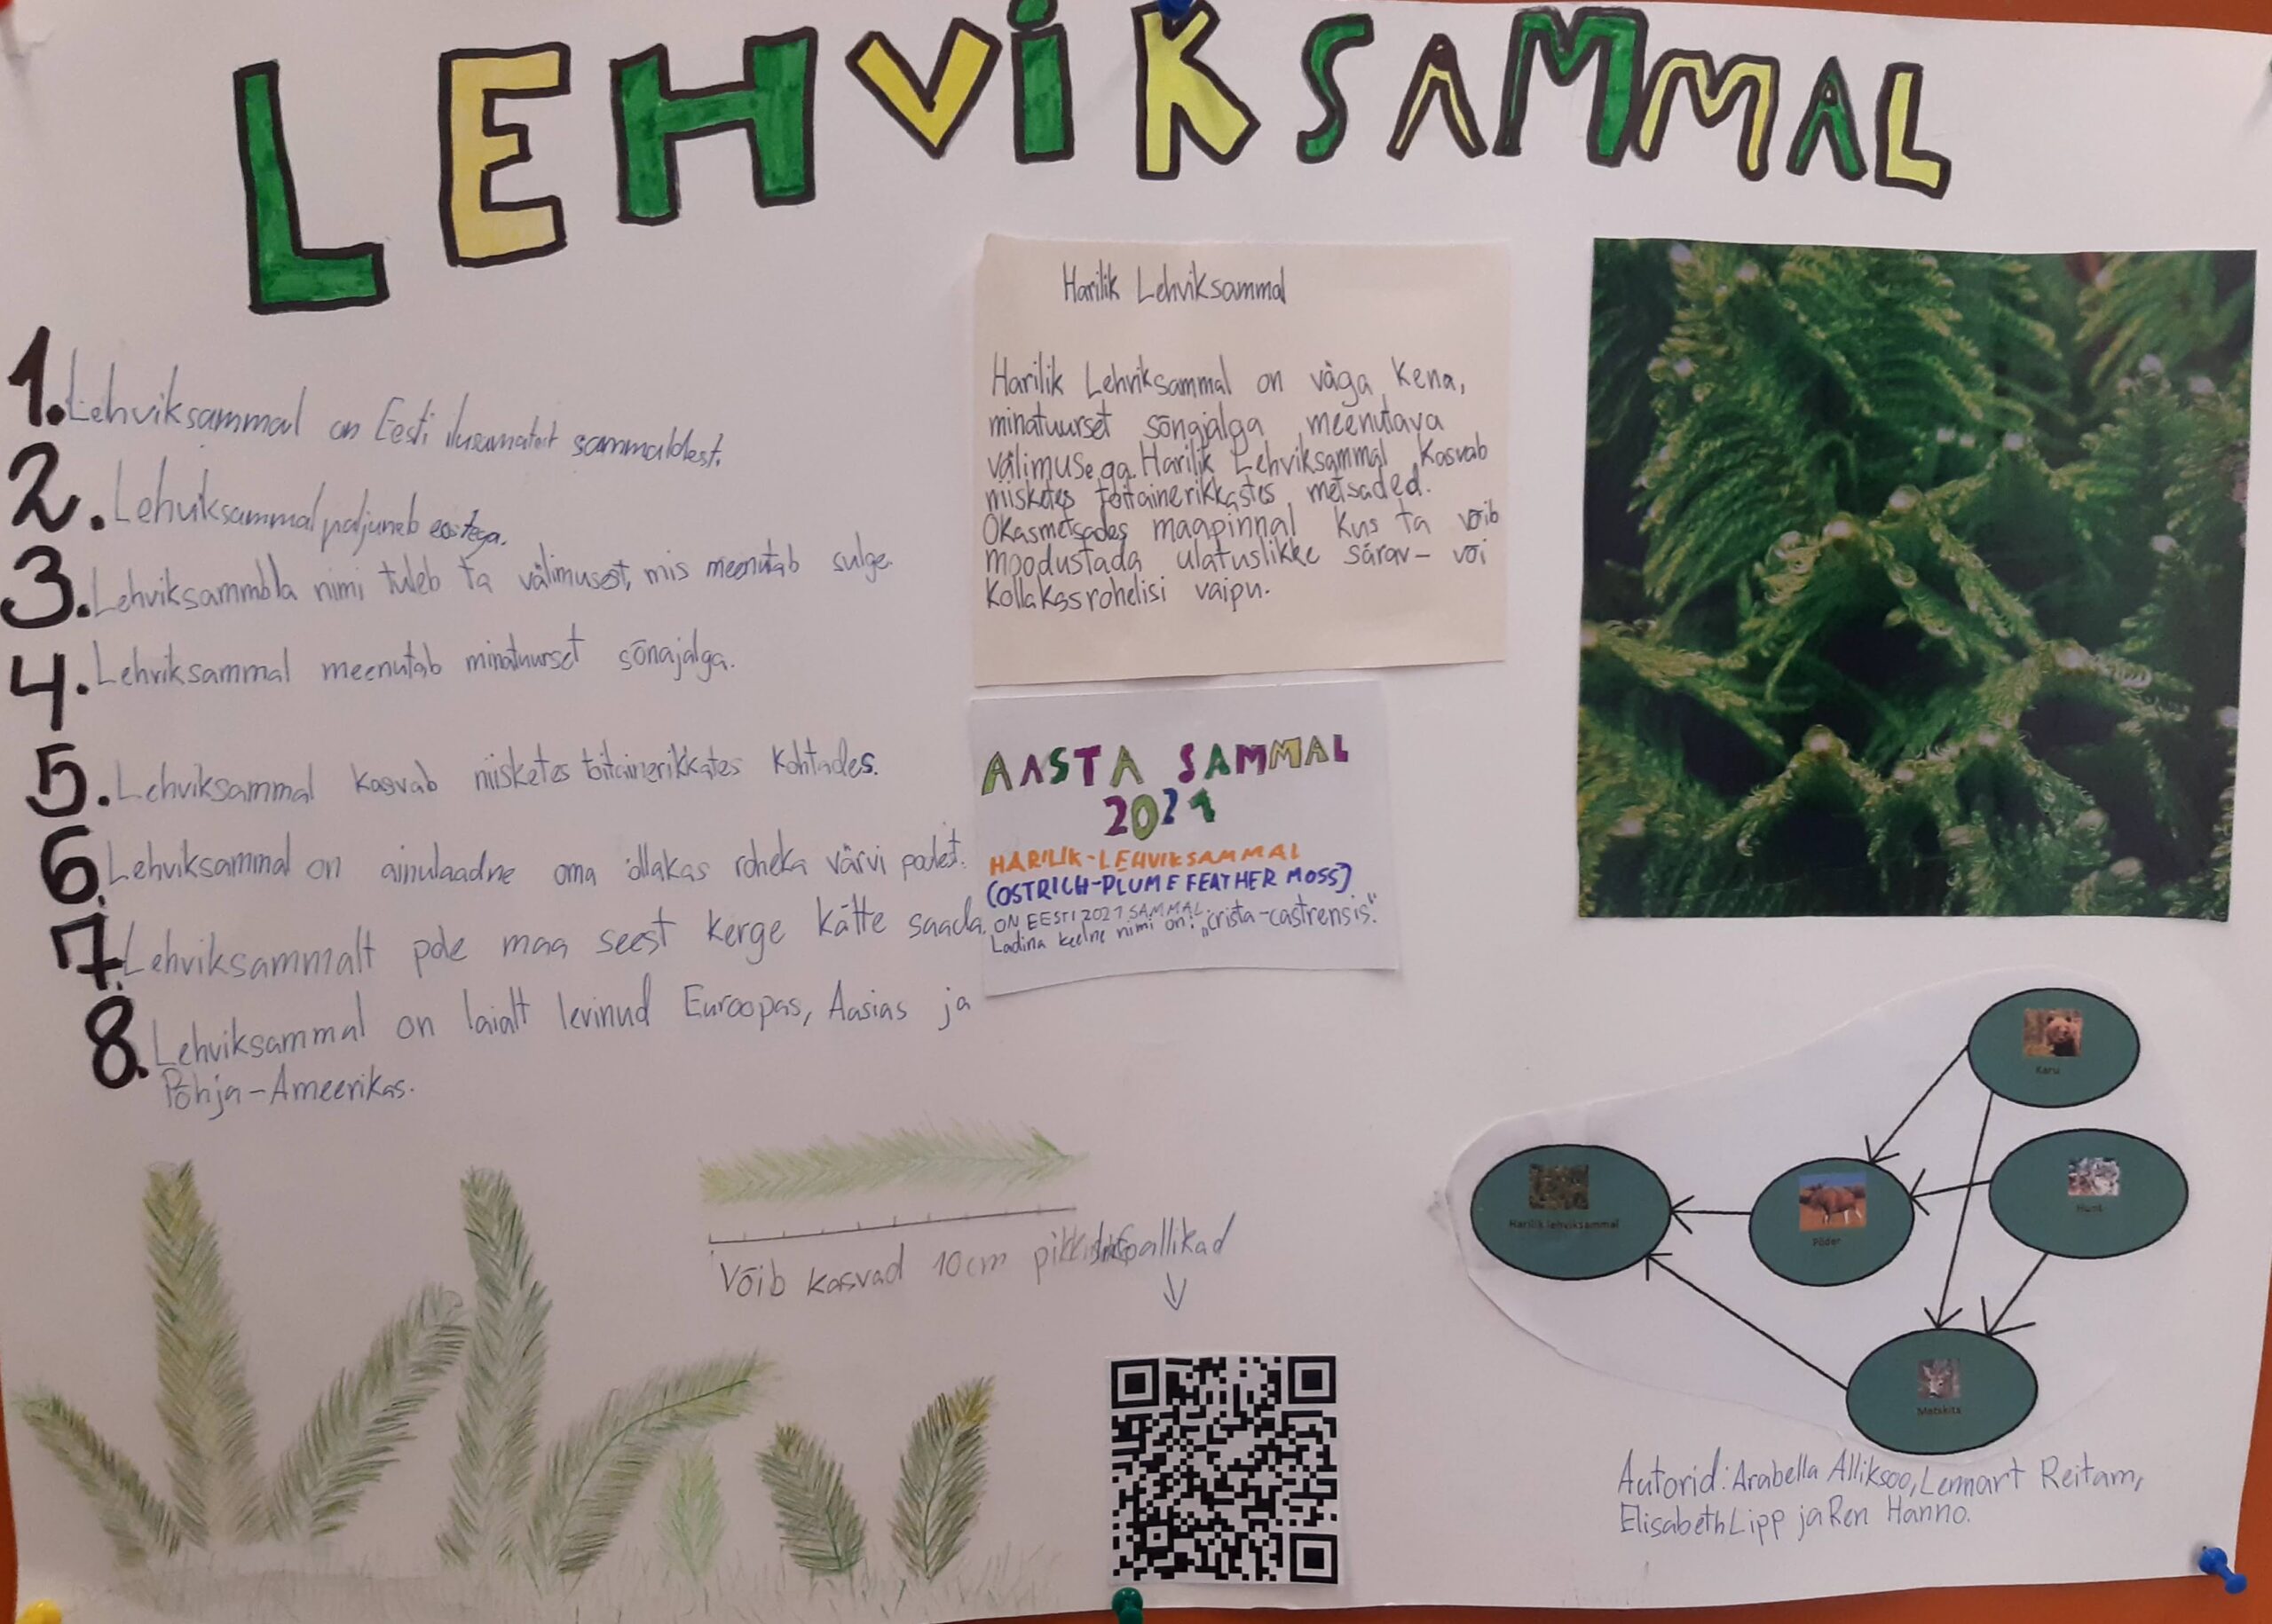 LEHVIKSAMMAL
1. Lehviksammal on Eesti ilusamatest sammaldest.
2. Lehviksammal paljuneb eostega.
3. Lehviksammbla nimi tuleb ta välimusest, mis meenutab sulge.
4. Lehviksammal meenutab minatuurset sõnajalga.
5. Lehviksammal kasvab niisketes toitainerikkates kohtades.
6. Lehviksammal on ainulaadne oma ollakas roheka värvi poolest.
7. Lehviksammalt pole maa seest kerge kätte saada.
8. Lehviksammal on laialt levinud Euroopas, Aasias ja
Põhja-Ameerikas.
Harilik Lehviksammal
Harilik Lehviksammal on väga kena,
minatuurset sõnajalga meenutava
välimusega. Harilik Lehviksammal kasvab
niisketes toitainerikkastes metsaded.
Okasmetsades maapinnal kus ta võib
moodustada ulatuslikke särav- või
kollakasrohelisi vaipu.
AASTA SAMMAL
2021
HARILIK-LEHVIKSAMMAL
(OSTRICH-PLUME FEATHER MOSS)
ON EESTI 2021 SAMMAL.
Ladina keelne nimi on: „crista-castrensis."
Võib kasvad 10cm
Infoallikad
Karu
Harilik lehviksammal
Põder
Hunt
Metskits
Autorid: Arabella Alliksoo, Lennart Reitam,
Elisabeth Lipp ja Ren Hanno.